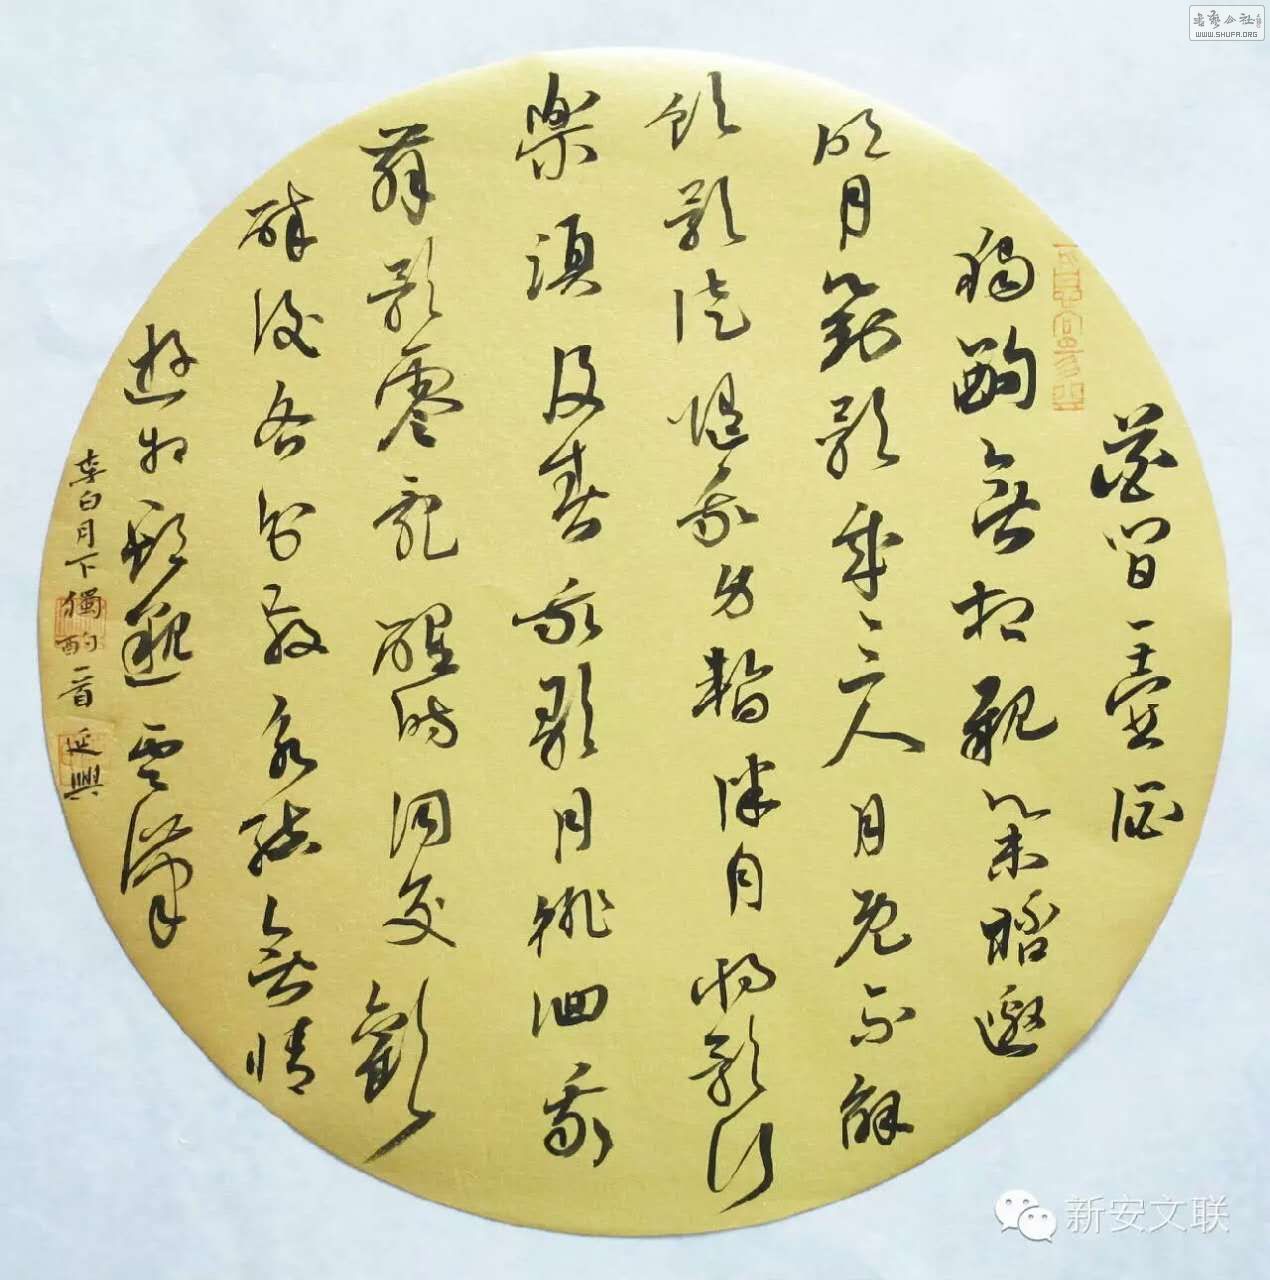 花間一壺酒
獨酌無相親舉杯邀
明月對影成三人月既不解
飲影徒隨我身暫伴月將影行
樂須及春我歌月徘徊我
舞影零亂醒時同交歡
醉後各分散永結無情
遊相期邈雲漢
李白月下獨酌一首 延興
书艺公社
WWW.SHUFA.ORG
新安文联